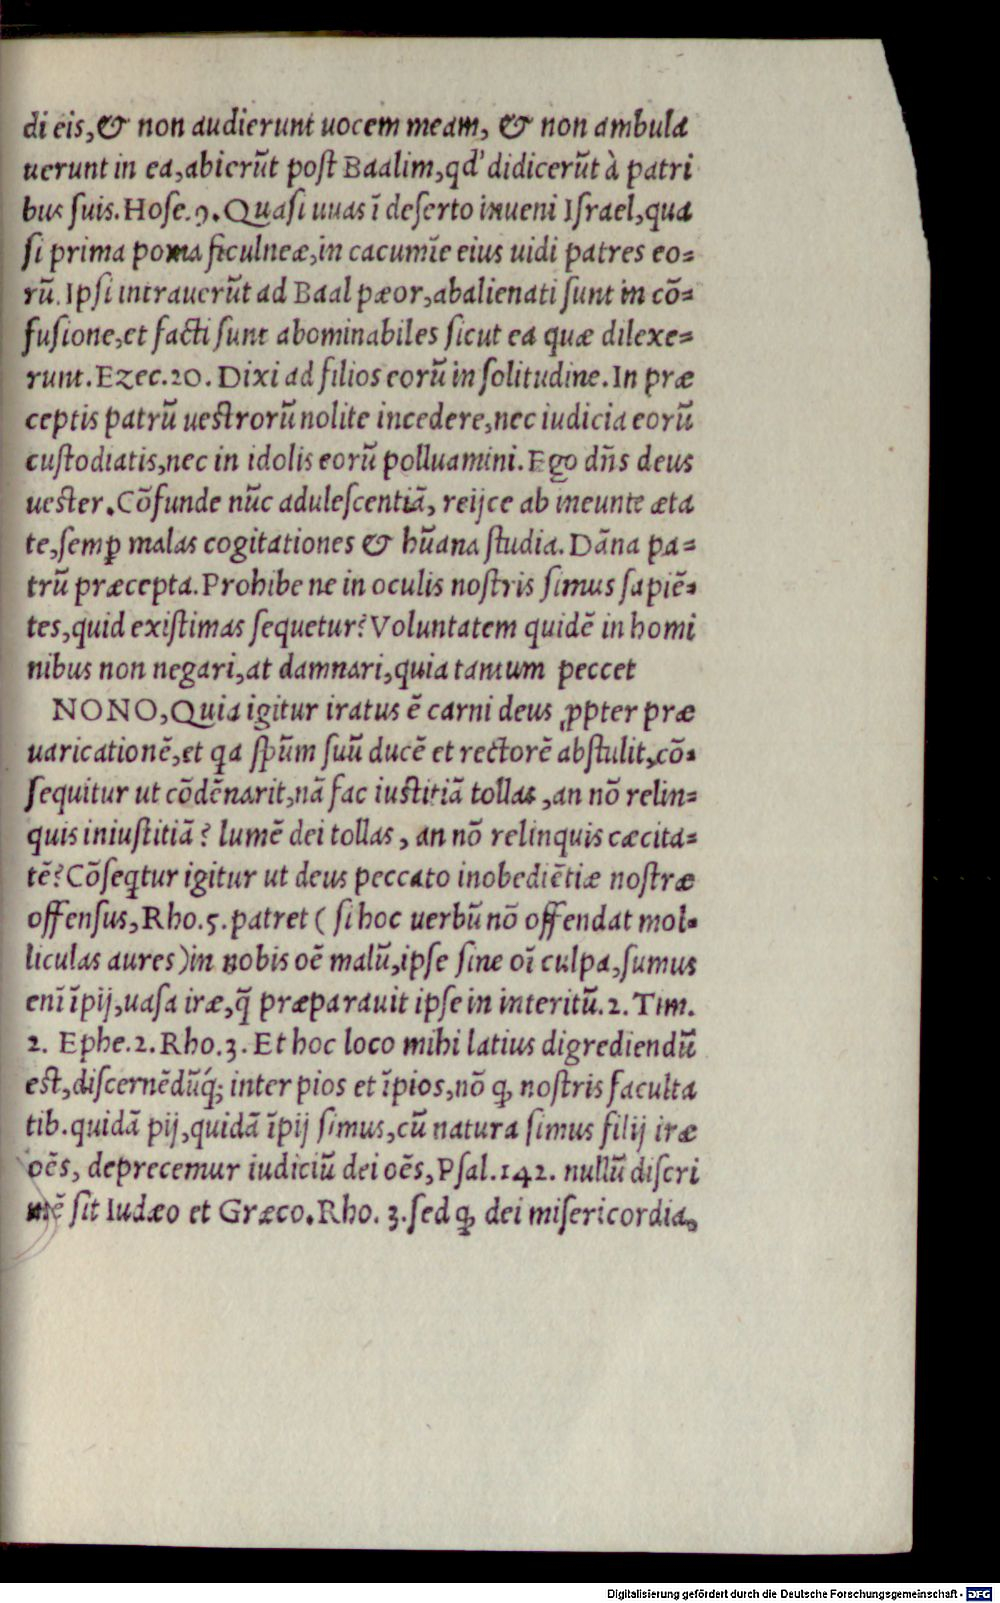 di eis, & non audierunt uocem meam, & non ambula
uerunt in ea, abierūt post Baalim, qd' didicerūt à patri
bus suis. Hose. 9. Quasi uuas ī deserto inueni Israel, qua
si prima poma ficulneæ, in cacumīe eius uidi patres eo=
rū. Ipsi intrauerūt ad Baal pæor, abalienati sunt in cō=
fusione, et facti sunt abominabiles sicut ea quæ dilexe=
runt. Ezec. 20. Dixi ad filios eorū in solitudine. In præ
ceptis patrū uestrorū nolite incedere, nec iudicia eorū
custodiatis, nec in idolis eorū polluamini. Ego dñs deus
uester. Cōfunde nūc adulescentiā, reijce ab ineunte æta
te, semꝑ malas cogitationes & hūana studia. Dāna pa=
trū præcepta. Prohibe ne in oculis nostris simus sapiē=
tes, quid existimas sequetur? Voluntatem quidē in homi
nibus non negari, at damnari, quia tantum peccet
NONO, Quia igitur iratus ē carni deus ꝓpter præ
uaricationē, et qa spūm suū ducē et rectorē abstulit, cō=
sequitur ut cōdēnarit, nā fac iustitiā tollas, an nō relin=
quis iniustitiā? lumē dei tollas, an nō relinquis cæcita=
tē? Cōseqtur igitur ut deus peccato inobediētiæ nostræ
offensus, Rho. 5. patret ( si hoc uerbū nō offendat mol=
liculas aures) in nobis oē malū, ipse sine oī culpa, sumus
enī īpij, uasa iræ, q̄ præparauit ipse in interitū. 2. Tim.
2. Ephe. 2. Rho. 3. Et hoc loco mihi latius digrediendū
est, discernēdūq́; inter pios et īpios, nō ꝙ nostris faculta
tib. quidā pij, quidā īpij simus, cū natura simus filij iræ
oēs, deprecemur iudiciū dei oēs, Psal. 142. nullū discri
mē sit Iudæo et Græco. Rho. 3. sed ꝙ dei misericordia,
Digitalisierung gefördert durch die Deutsche Forschungsgemeinschaft - DFG